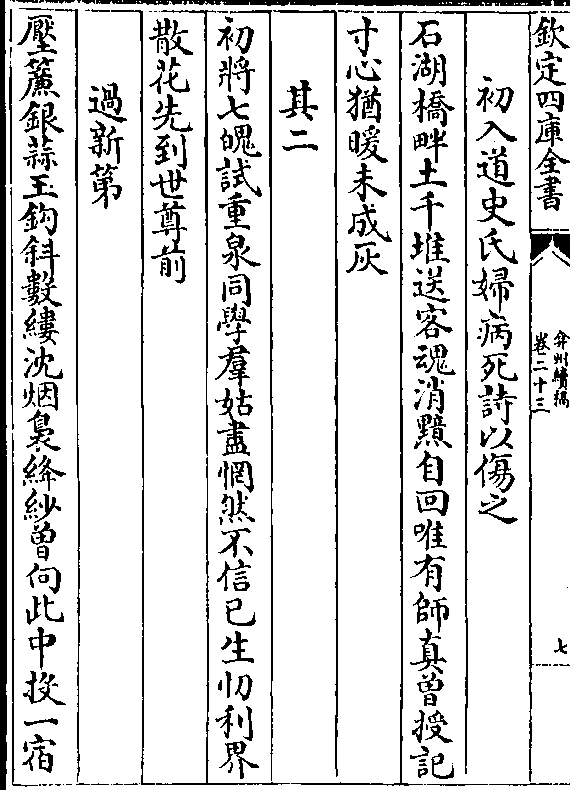 欽定四庫全書
弇州續稿
卷二十三
七
初入道史氏婦病死詩以傷之
石湖橋畔土千堆送客魂消黯自回唯有師真曾授記
寸心猶暖未成灰
其二
初將七魄試重泉同學羣姑盡惘然不信已生忉利界
散花先到世尊前
過新第
壓簾銀蒜玉鈎斜數縷沈烟裊絳紗曾向此中投一宿